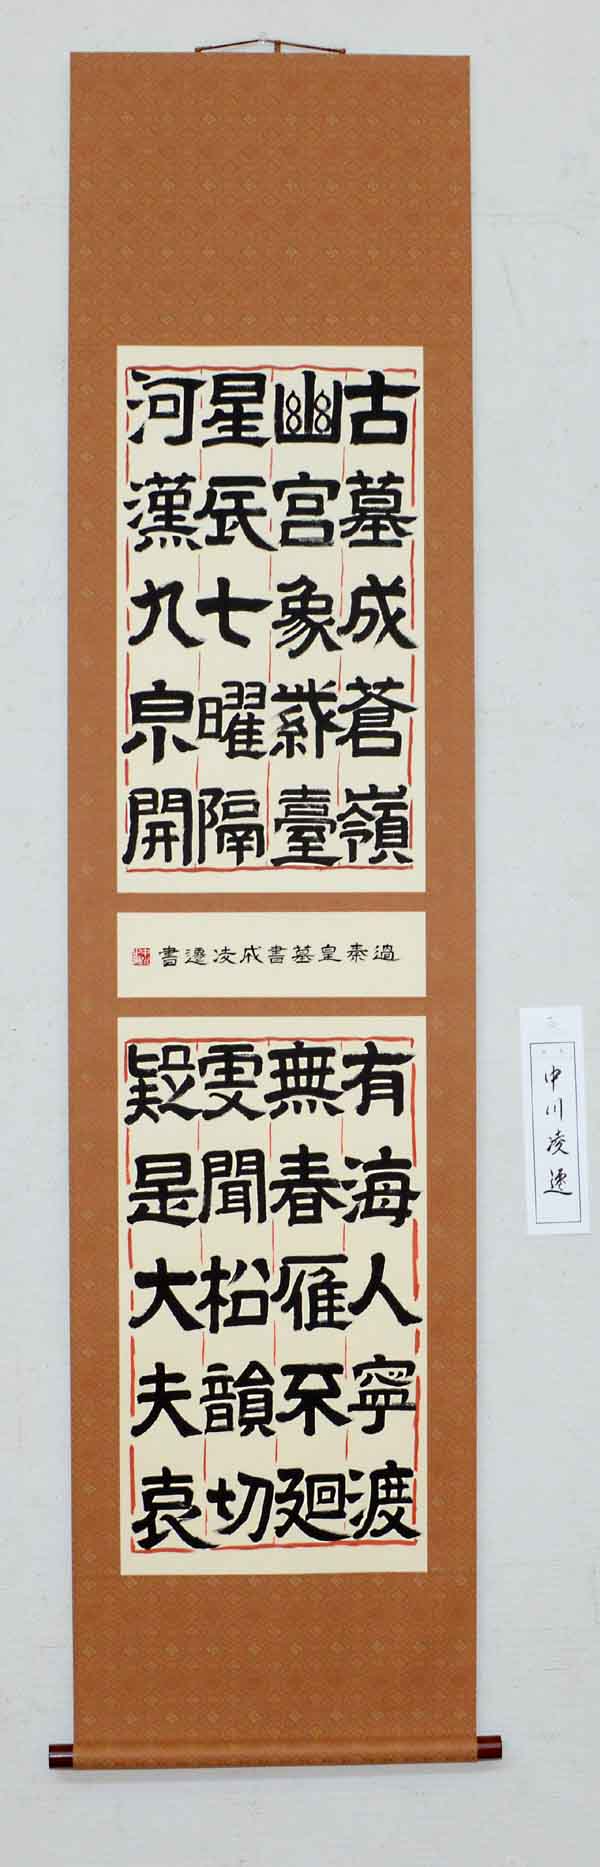 古墓成蒼嶺
幽宮象紫臺
星辰七曜隔
河漢九泉開
過秦皇墓書成凌遷書
有海人寧渡
無春雁不廻
更聞松韻切
疑是大夫哀
中川凌遷